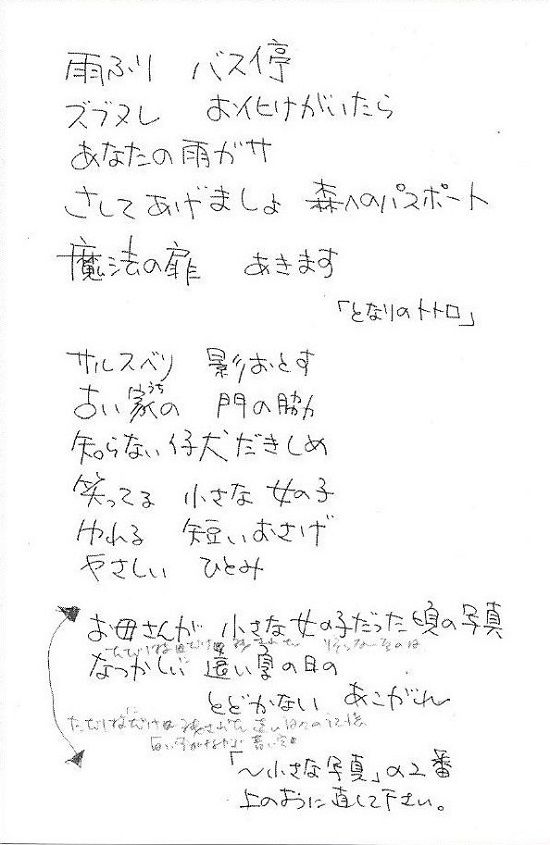 雨ふり バス停
ズブヌレ お化けがいたら
あなたの雨ガサ
さしてあげましょ 森へのパスポート
魔法の扉 あきます
「となりのトトロ」
サルスベリ 影おとす
うち
古い家の 門の脇
知らない仔犬だきしめ
笑ってる 小さな 女の子
ゆれる 短いおさげ
やさしい ひとみ
お母さんが 小さな女の子だった頃の写真
なつかしい 遠い夏の日の
とどかない あこがれ
「〜小さな写真」の2番
上のように直して下さい。